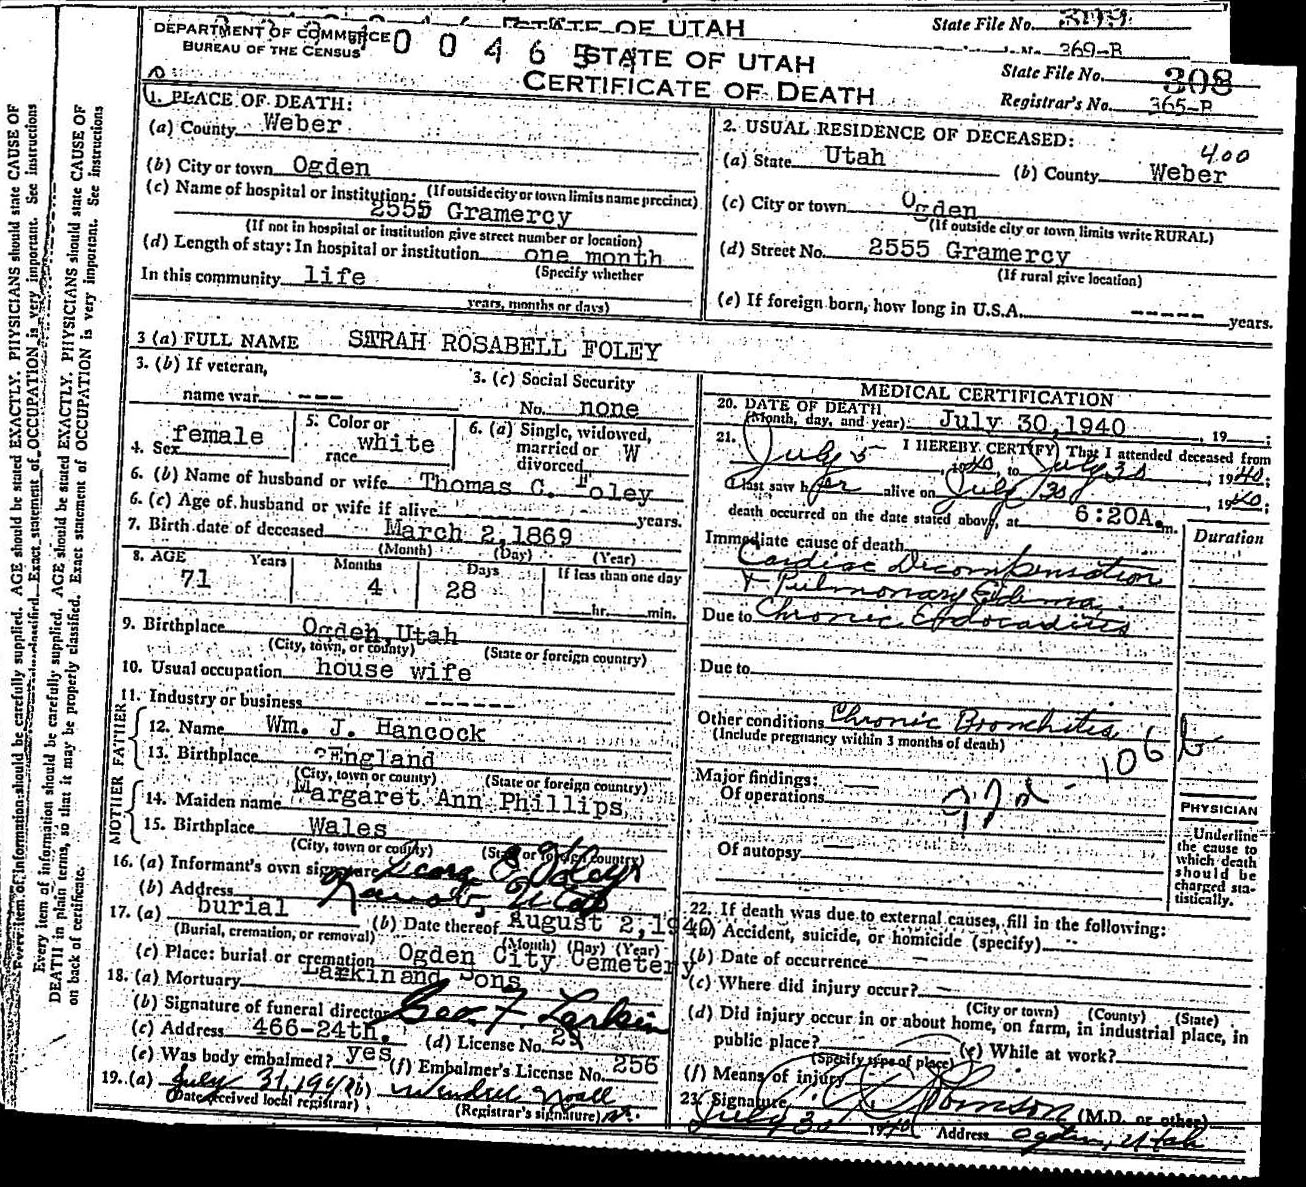 STATE OF UTAH
State File No.
369-B
DEPARTMENT OF COMMERCE
BUREAU OF THE CENSUS
0 0 4 6 5
STATE OF UTAH
CERTIFICATE OF DEATH
State File No. 308
Registrar's No. 365-B
1. PLACE OF DEATH:
(a) County Weber
(b) City or town Ogden
(If outside city or town limits name precinct)
(c) Name of hospital or institution:
2555 Gramercy
(If not in hospital or institution give street number or location)
(d) Length of stay: In hospital or institution one month
(Specify whether
In this community life
years, months or days)
2. USUAL RESIDENCE OF DECEASED:
400
(a) State Utah (b) County Weber
(c) City or town Ogden
(If outside city or town limits write RURAL)
(d) Street No. 2555 Gramercy
(If rural give location)
(e) If foreign born, how long in U.S.A. ----- years.
3 (a) FULL NAME SARAH ROSABELL FOLEY
3. (b) If veteran,
name war ---
3. (c) Social Security
No. none
4. Sex female
5. Color or
race white
6. (a) Single, widowed,
married or
divorced W
6. (b) Name of husband or wife Thomas C. Foley
6. (c) Age of husband or wife if alive years.
7. Birth date of deceased March 2, 1869
(Month) (Day) (Year)
8. AGE Years Months Days If less than one day
71 4 28 hr. min.
9. Birthplace Ogden, Utah
(City, town, or county) (State or foreign country)
10. Usual occupation house wife
11. Industry or business ------
FATHER
12. Name Wm. J. Hancock
13. Birthplace England
(City, town or county) (State or foreign country)
MOTHER
14. Maiden name Margaret Ann Phillips
15. Birthplace Wales
(City, town or county) (State or foreign country)
16. (a) Informant's own signature George Foley
(b) Address Kanosh, Utah
17. (a) burial (b) Date thereof August 2, 1940
(Burial, cremation, or removal) (Month) (Day) (Year)
(c) Place: burial or cremation Ogden City Cemetery
18. (a) Mortuary Larkin and Sons
(b) Signature of funeral director Geo. F. Larkin
(c) Address 466-24th. (d) License No. 29
(e) Was body embalmed? yes (f) Embalmer's License No. 256
19. (a) July 31, 1940 (b)
(Date received local registrar) (Registrar's signature)
MEDICAL CERTIFICATION
20. DATE OF DEATH
(Month, day, and year): July 30, 1940, 19 ;
21. I HEREBY CERTIFY That I attended deceased from
July 5, 1940, to July 30, 1940;
I last saw her alive on July 30, 1940;
death occurred on the date stated above, at 6:20A.m.
Duration
Immediate cause of death
Cardiac Decompensation
+ Pulmonary Edema
Due to Chronic Endocarditis
Due to
Other conditions Chronic Bronchitis
(Include pregnancy within 3 months of death)
106 b
Major findings:
Of operations
Of autopsy
PHYSICIAN
Underline
the cause to
which death
should be
charged sta-
tistically.
22. If death was due to external causes, fill in the following:
(a) Accident, suicide, or homicide (specify)
(b) Date of occurrence
(c) Where did injury occur?
(City or town) (County) (State)
(d) Did injury occur in or about home, on farm, in industrial place, in
public place? (e) While at work?
(Specify type of place)
(f) Means of injury
23. Signature (M.D. or other)
July 30 1940 Address Ogden, Utah
Every item of information should be carefully supplied. AGE should be stated EXACTLY. PHYSICIANS should state CAUSE OF
DEATH in plain terms, so that it may be properly classified. Exact statement of OCCUPATION is very important. See instructions
on back of certificate.